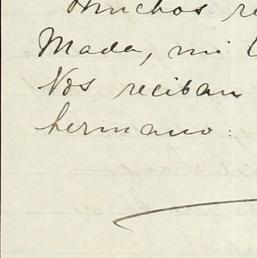 Muchos
Mada, mi
Vos reciban
hermano: